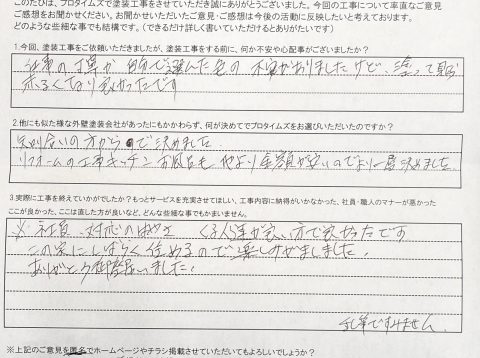 このたびは、プロタイムズで塗装工事をさせていただき誠にありがとうございます。今回の工事について率直なご意見
ご感想をお聞かせください。お聞かせいただいたご意見・ご感想は今後の活動に反映したいと考えております。
どのような些細な事でも結構です。（できるだけ詳しく書いていただけるとありがたいです）
1.今回、塗装工事をご依頼いただきましたが、塗装工事をする前に、何か不安や心配事がございましたか?
仕事の丁寧か 自分で選んだ色の 不安がおりましたけど、塗って見
明るくなり良かったです
2.他にも似た様な外壁塗装会社があったにもかかわらず、何が決めてでプロタイムズをお選びいただいたのですか?
知り合いの方から で決めました
リフォームの工事キッチン お風呂も 他より金額が安いのでより一層決めました。
3.実際に工事を終えていかがでしたか?もっとサービスを充実させてほしい、工事内容に納得がいかなかった、社員・職人のマナーが悪かった
ここが良かった、ここは直した方が良いなど、どんな些細な事でもかまいません。
※ 社員 対応の くる人達が良い方で良かったです
この家にしばらく住めるので楽しみがましました!
ありがとう御座いました!
乱筆ですみません
※上記のご意見を匿名でホームページやチラシ掲載させていただいてもよろしいでしょうか?